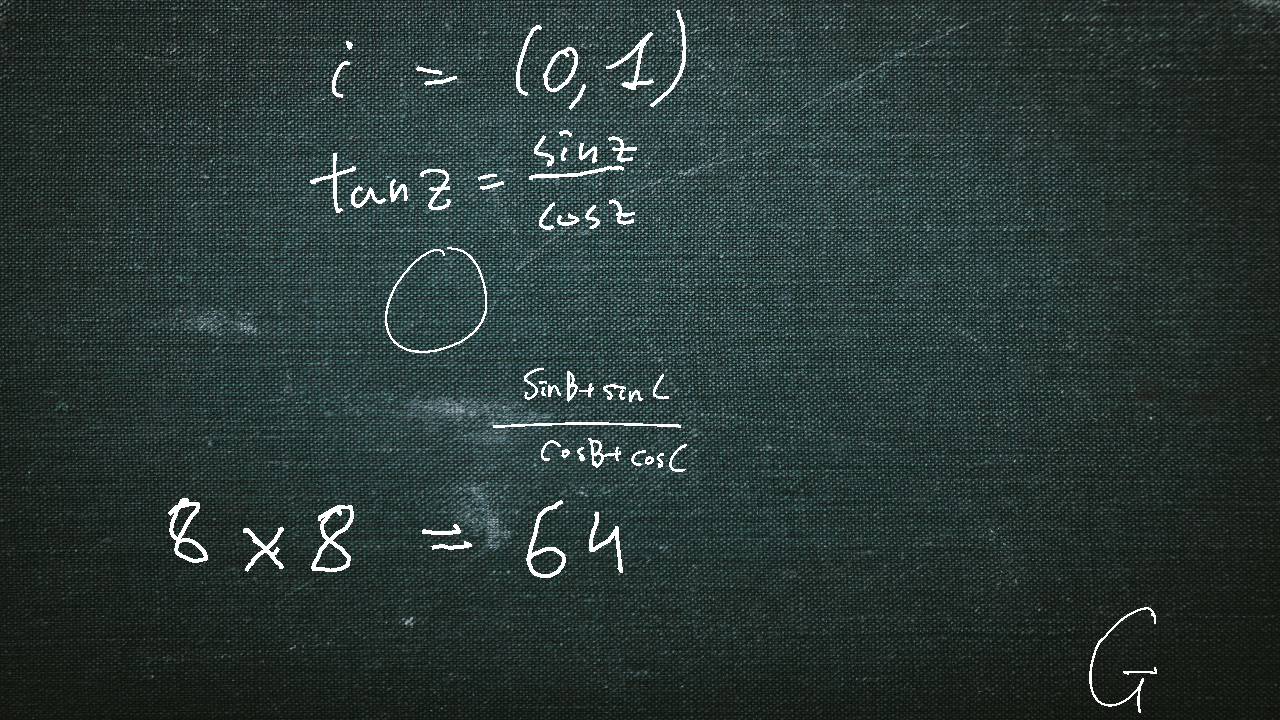 i = (0,1)
tan z = sin z / cos z
sin B + sin C / cos B + cos C
8 × 8 = 64
G